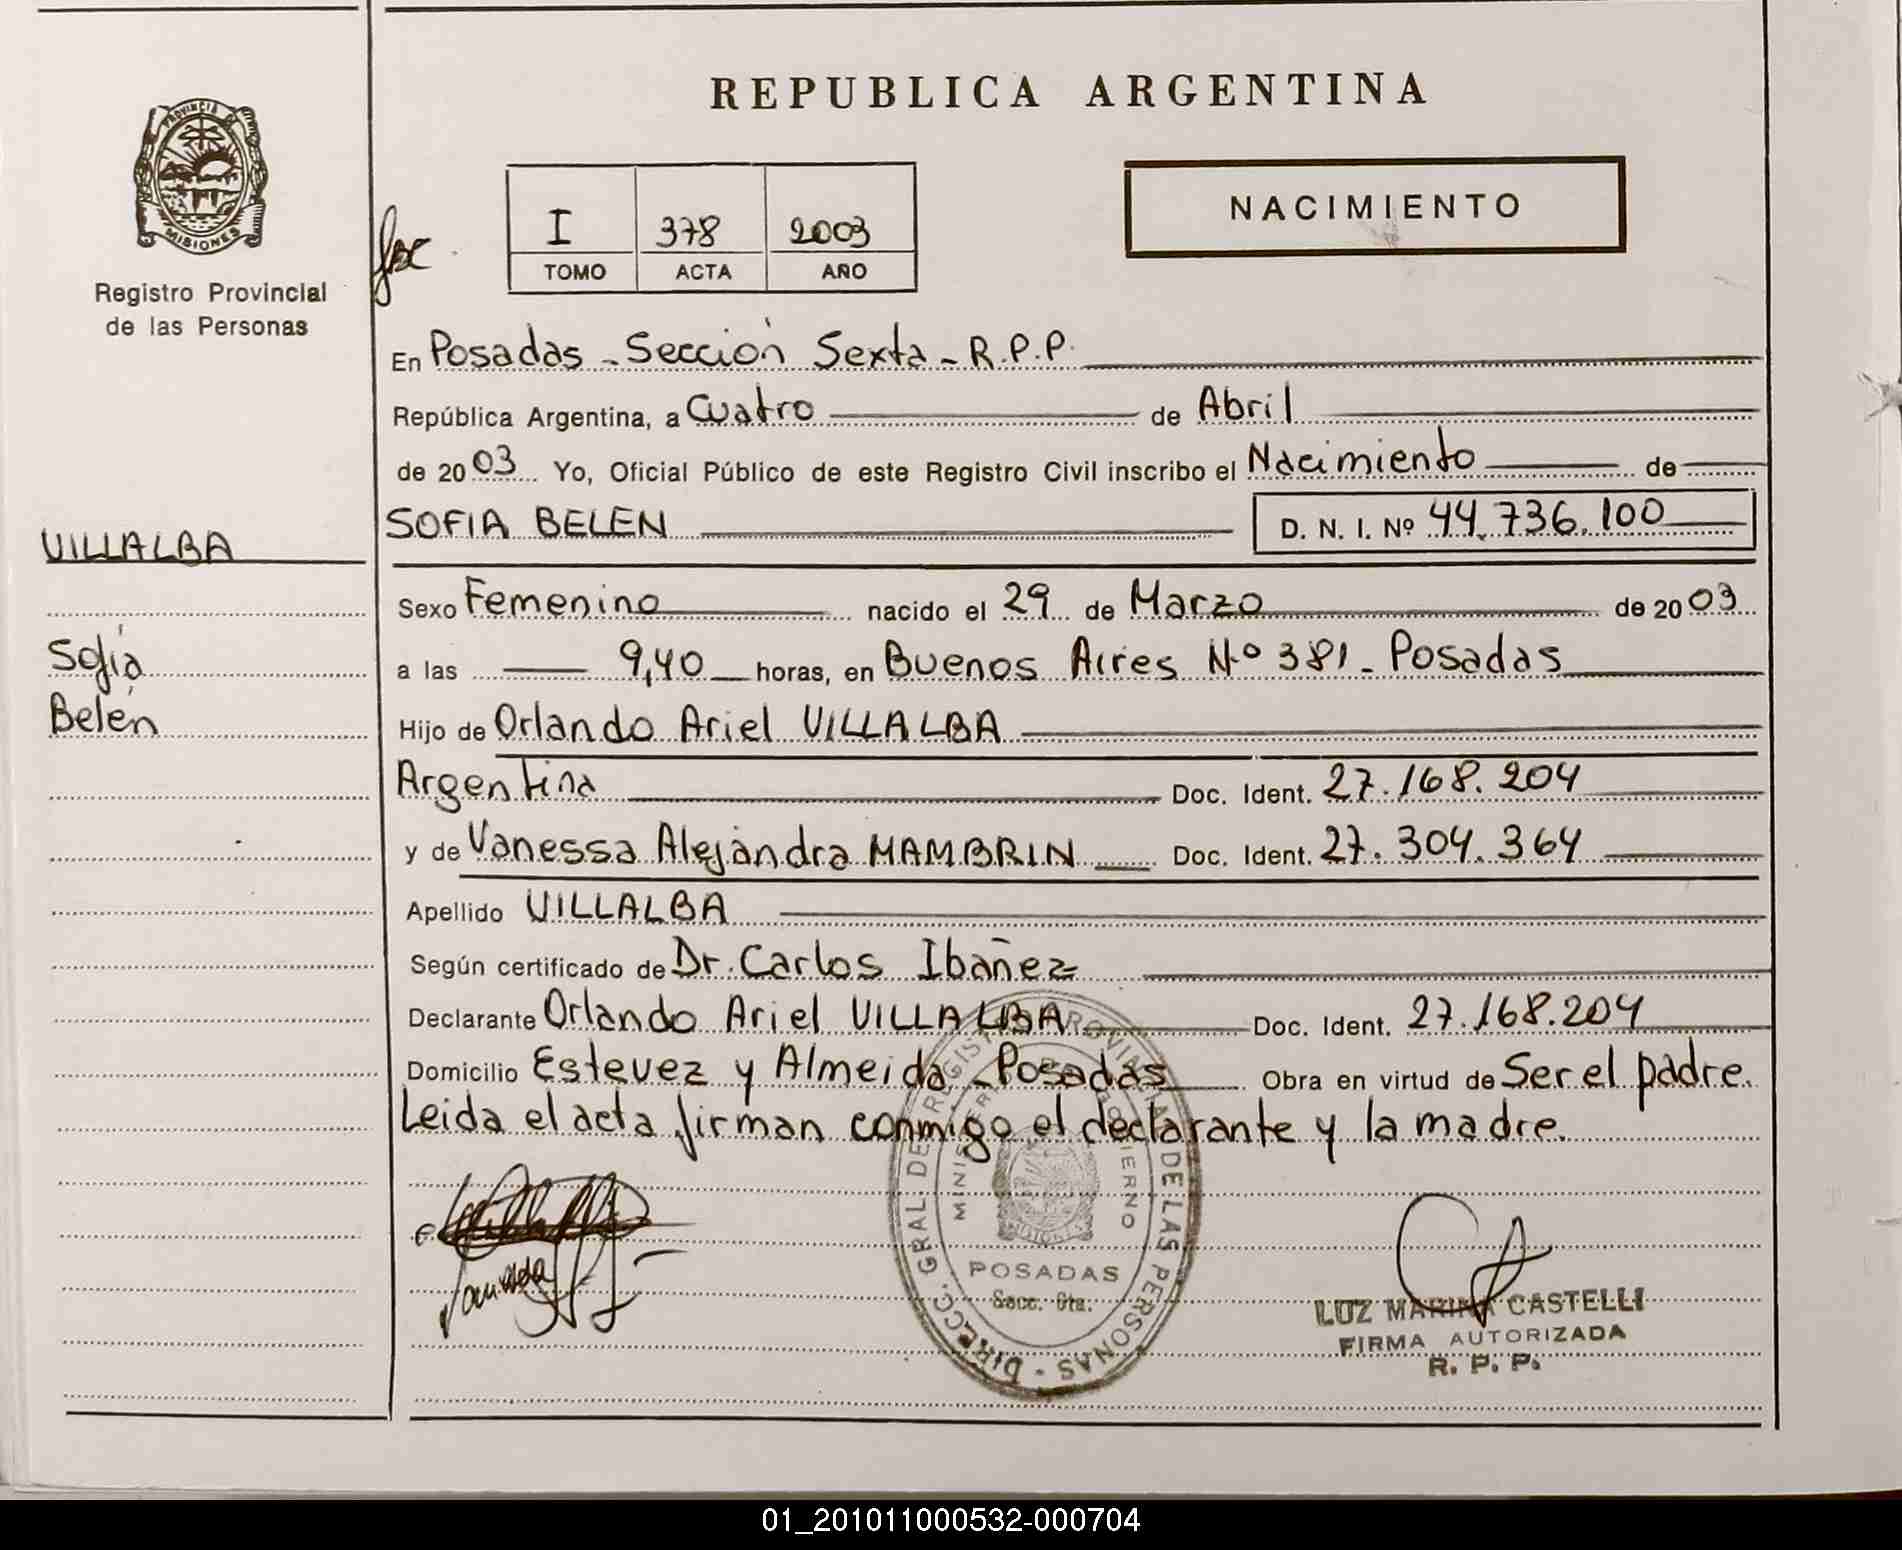 REPUBLICA ARGENTINA
PROVINCIA DE
MISIONES
Registro Provincial
de las Personas
I 378 2003
TOMO ACTA AÑO
NACIMIENTO
En Posadas - Sección Sexta - R.P.P.
República Argentina, a Cuatro de Abril
de 2003 Yo, Oficial Público de este Registro Civil inscribo el Nacimiento de
VILLALBA
SOFIA BELEN D. N. I. Nº 44.736.100
Sexo Femenino nacido el 29 de Marzo de 2003
Sofía
a las 9,40 horas, en Buenos Aires Nº 381 - Posadas
Belén
Hijo de Orlando Ariel VILLALBA
Argentina Doc. Ident. 27.168.204
y de Vanessa Alejandra MAMBRIN Doc. Ident. 27.304.364
Apellido VILLALBA
Según certificado de Dr. Carlos Ibañez
Declarante Orlando Ariel VILLALBA Doc. Ident. 27.168.204
Domicilio Estevez y Almeida - Posadas Obra en virtud de Ser el padre.
Leida el acta firman conmigo el declarante y la madre.
DIRECC. GRAL. DE REGISTRO PROVINCIAL DE LAS PERSONAS
MINISTERIO DE GOBIERNO
MISIONES
POSADAS
Secc. 6ta.
LUZ MARINA CASTELLI
FIRMA AUTORIZADA
R. P. P.
01_201011000532-000704